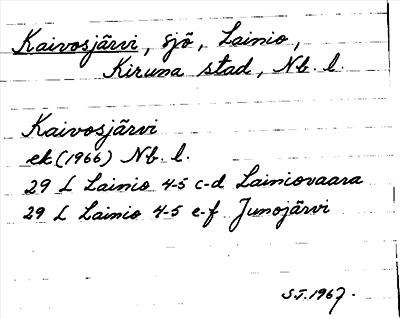 Kaivosjärvi, sjö, Lainio,
Kiruna stad, Nb. l.
Kaivosjärvi
ek (1966) Nb. l.
29 L Lainio 4-5 c-d Lainiovaara
29 L Lainio 4-5 e-f Junojärvi
S.J. 1967.